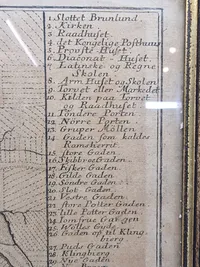 1. Slottet Brunlund
2. Kirken
3. Raadhuset
4. det Kongelige Posthuus
5. Provste Huset
6. Diaconat-Huset.
7. Latinske og Regne
Skolen
8. Arm Huset og Skolen
9. Torvet eller Markedet
10. Kilden paa Torvet
og Raadhuset
11. Töndere Porten
12. Nörre Porten
13. Gruper Möllen
14. Gaden som kaldes
Ramsherrit
15. store Gaden
16. Skibbroe Gaden
17. Fisker Gaden
18. Gilds Gaden
19. Söndre Gaden
20. Slot Gaden
21. Vestre Gaden
22. store Potter Gaden
23. lille Potter Gaden
24. Jomfrue Gangen
25. Gaden
26. Gaden op til Kling
berg
27. Puds Gaden
28. Klingberg
29. Nye Gaden